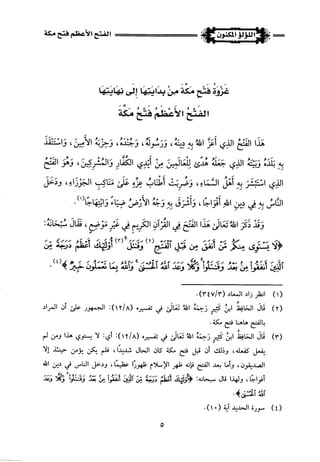 اللؤلؤ المكنون
الفتح الأعظم فتح مكة
غزوة فتح مكة من بدايتها إلى نهايتها
الفتح الأعظم فتح مكة
هذا الفتح الذي أعز الله به دينه، ورسوله، وجنده، وحزبه الأمين، واستنقذ
به بلده وبيته الذي جعله هدى للعالمين من أيدي الكفار والمشركين، وهو الفتح
الذي استبشر به أهل السماء، وضربت أطناب عزه على مناكب الجوزاء، ودخل
الناس به في دين الله أفواجا، وأشرق به وجه الأرض ضياء وابتهاجا(١).
وقد ذكر الله تعالى هذا الفتح في القرآن الكريم في غير موضع، فقال سبحانه:
﴿لا يستوي منكم من أنفق من قبل الفتح(٢) وقاتل(٣) أولئك أعظم درجة من
الذين أنفقوا من بعد وقاتلوا وكلا وعد الله الحسنى والله بما تعملون خبير﴾(٤).
(١) انظر زاد المعاد (٣٤٧/٣).
(٢) قال الحافظ ابن كثير رحمه الله تعالى في تفسيره (١٢/٨): الجمهور على أن المراد
بالفتح هاهنا فتح مكة.
(٣) قال الحافظ ابن كثير رحمه الله تعالى في تفسيره (١٢/٨): أي: لا يستوي هذا ومن لم
يفعل كفعله، وذلك أن قبل فتح مكة كان الحال شديدا، فلم يكن يؤمن حينئذ إلا
الصديقون، وأما بعد الفتح فإنه ظهر الإسلام ظهورا عظيما، ودخل الناس في دين الله
أفواجا، ولهذا قال سبحانه: ﴿أولئك أعظم درجة من الذين أنفقوا من بعد وقاتلوا وكلا وعد
الله الحسنى﴾.
(٤) سورة الحديد آية (١٠).
٥